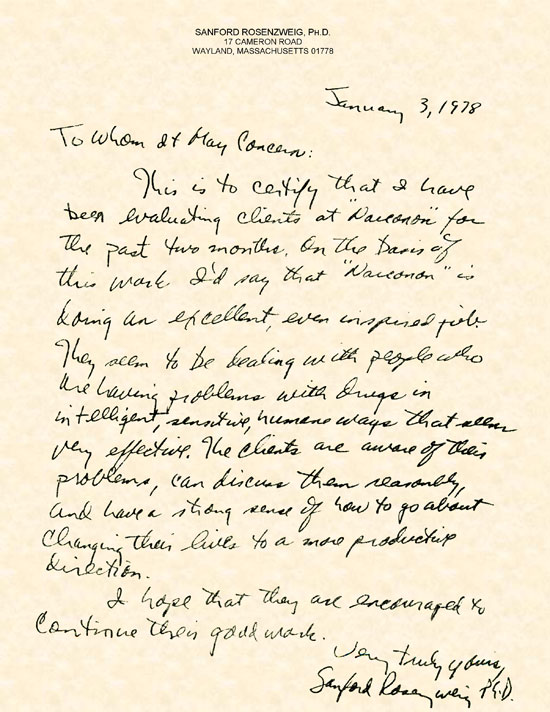 SANFORD ROSENZWEIG, PH.D.
17 CAMERON ROAD
WAYLAND, MASSACHUSETTS 01778
January 3, 1978
To Whom It May Concern:
This is to certify that I have
been evaluating clients at "Narconon" for
the past two months. On the basis of
this work I'd say that "Narconon" is
doing an excellent, even inspired job.
They seem to be dealing with people who
are having problems with drugs in
intelligent, sensitive, humane ways that seem
very effective. The clients are aware of their
problems, can discuss them reasonably,
and have a strong sense of how to go about
changing their lives to a more productive
direction.
I hope that they are encouraged to
continue their good work.
Very truly yours,
Sanford Rosenzweig Ph.D.